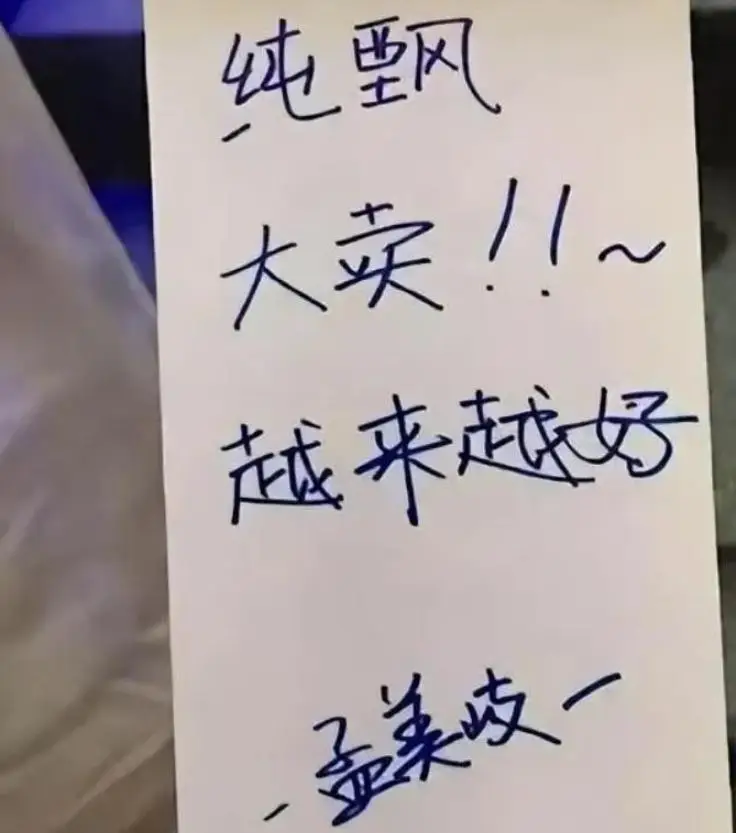 纯甄
大卖!!~
越来越好
孟美岐